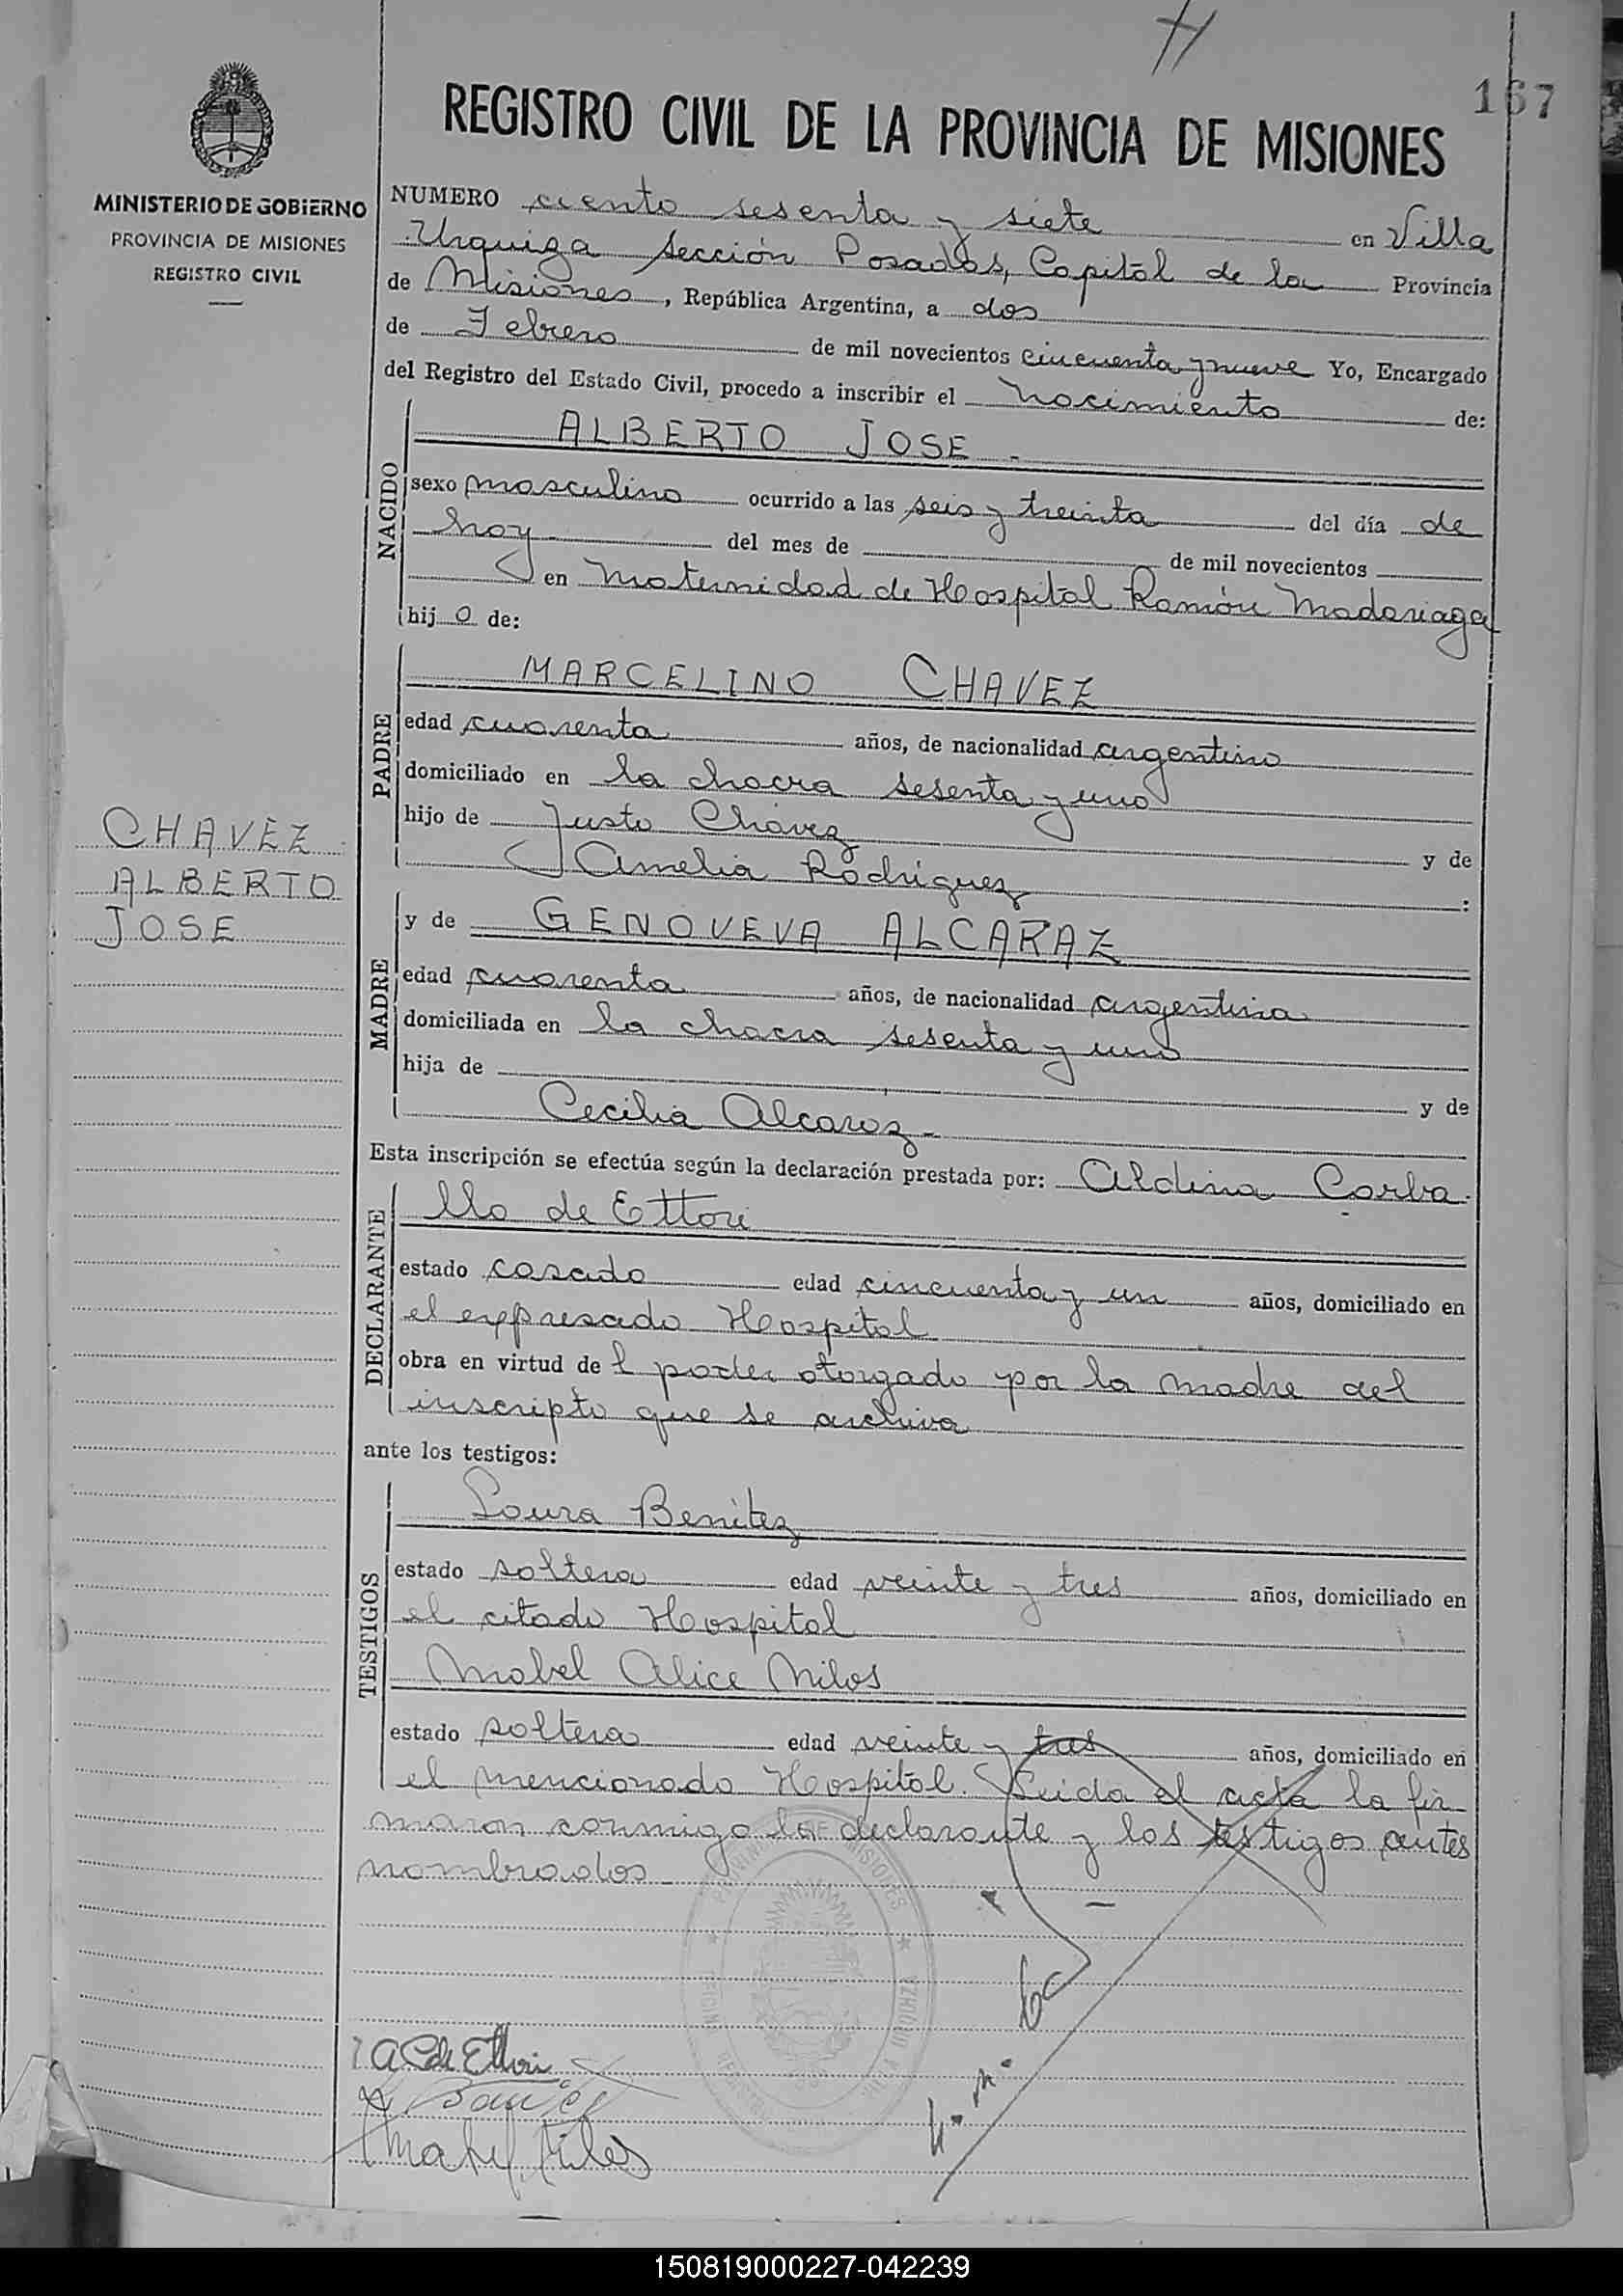 167
REGISTRO CIVIL DE LA PROVINCIA DE MISIONES
MINISTERIO DE GOBIERNO
PROVINCIA DE MISIONES
REGISTRO CIVIL
NUMERO ciento sesenta y siete en Villa
Urquiza sección Posadas, Capital de la Provincia
de Misiones, República Argentina, a dos
de Febrero de mil novecientos cincuenta y nueve Yo, Encargado
del Registro del Estado Civil, procedo a inscribir el nacimiento de:
NACIDO
ALBERTO JOSE.-
sexo masculino ocurrido a las seis y treinta del día de
hoy del mes de de mil novecientos
en Maternidad de Hospital Ramón Madariaga
hijo de:
PADRE
MARCELINO CHAVEZ
edad cuarenta años, de nacionalidad argentino
domiciliado en la chacra sesenta y uno
hijo de Justo Chávez y de
Amelia Rodriguez :
CHAVEZ
ALBERTO
JOSE
MADRE
y de GENOVEVA ALCARAZ
edad cuarenta años, de nacionalidad argentina
domiciliada en la chacra sesenta y uno
hija de y de
Cecilia Alcaraz-
Esta inscripción se efectúa según la declaración prestada por: Aldina Carba
DECLARANTE
llo de Ettori
estado casado edad cincuenta y un años, domiciliado en
el expresado Hospital
obra en virtud del poder otorgado por la madre del
inscripto que se archiva
ante los testigos:
TESTIGOS
Laura Benitez
estado soltera edad veinte y tres años, domiciliado en
el citado Hospital
Mabel Alice Milos
estado soltera edad veinte y tres años, domiciliado en
el mencionado Hospital. Leida el acta la fir
maron conmigo la declarante y los testigos antes
nombrados
A C de Ettori
Mabel Milos
150819000227-042239